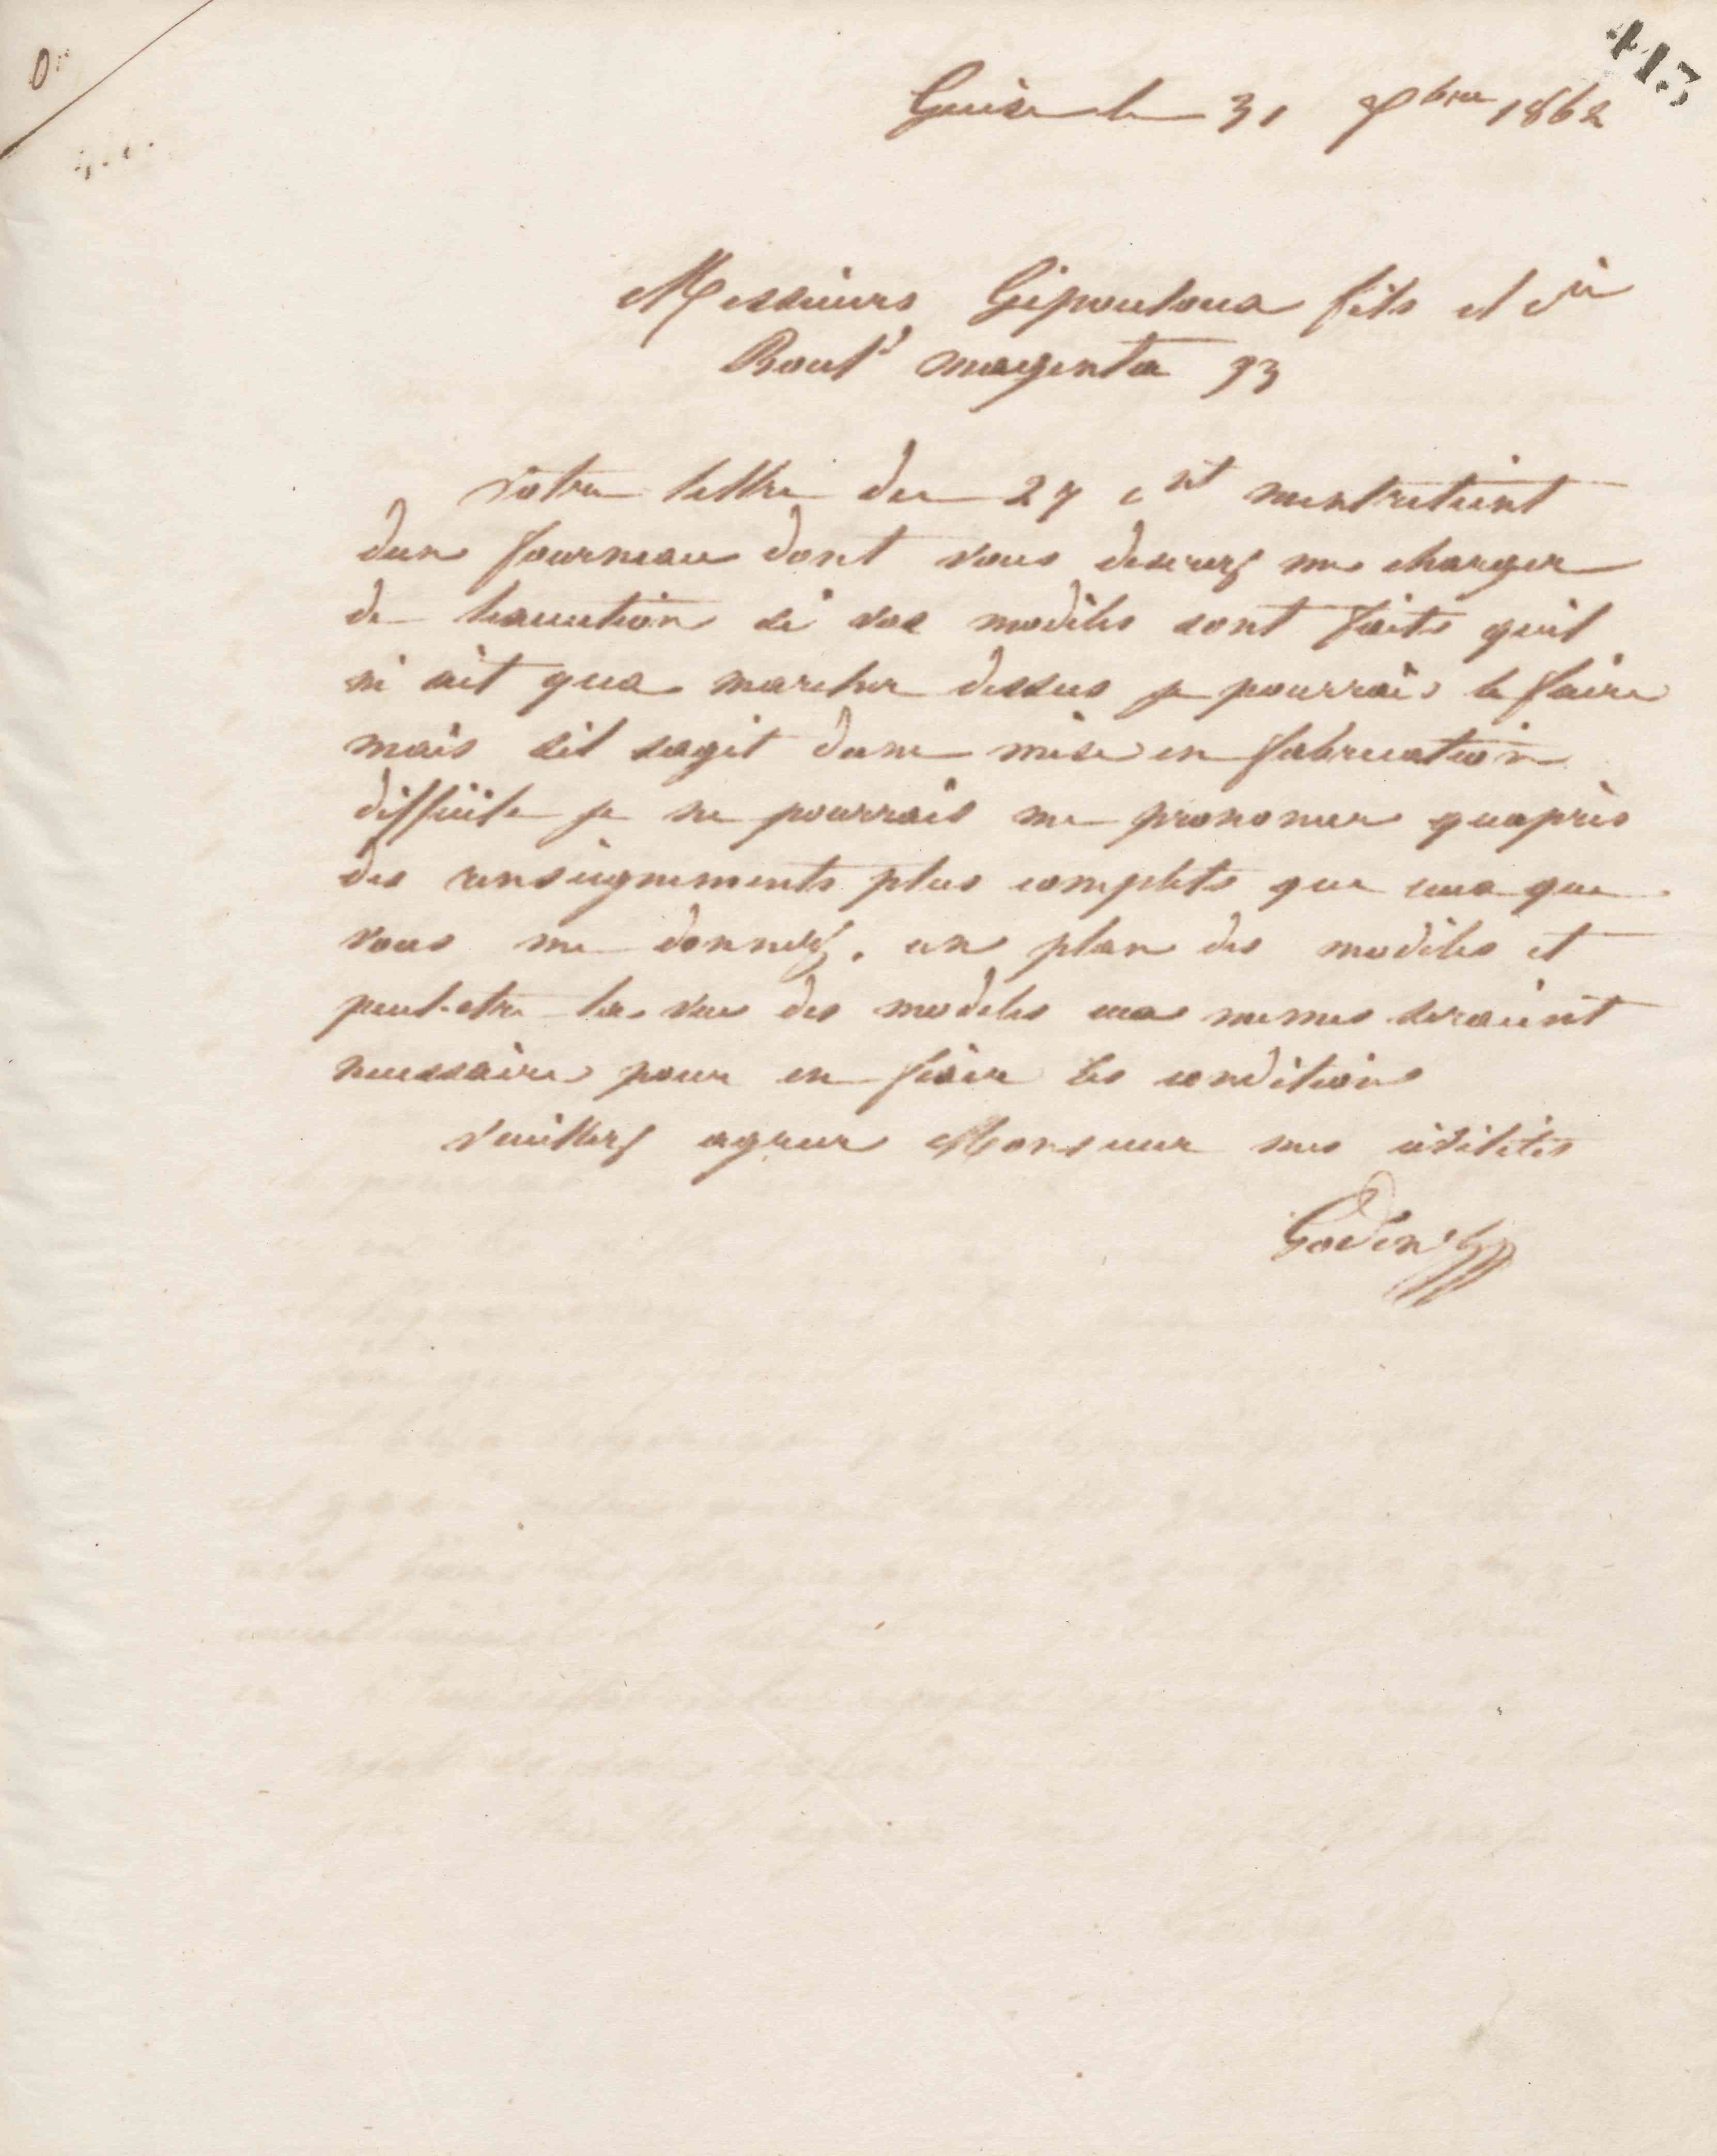 413
Guise le 31 Xbre 1862
Messieurs Gipouloux fils et Cie
Bould magenta 33
votre lettre du 27 ct mentretient
dun fourneau dont vous desirez me charger
de lexecution si vos modèles sont faits quil
ni ait qua marcher dessus je pourrais le faire
mais sil sagit dune mise en fabrication
difficile je ne pourrais me prononcer quapres
des renseignements plus complets que ceux que
vous me donnez. un plan des modèles et
peut-etre la vue des modèles eux memes seraient
necessaires pour en fixer les conditions
veuillez agreer Monsieur mes civilités
Godin